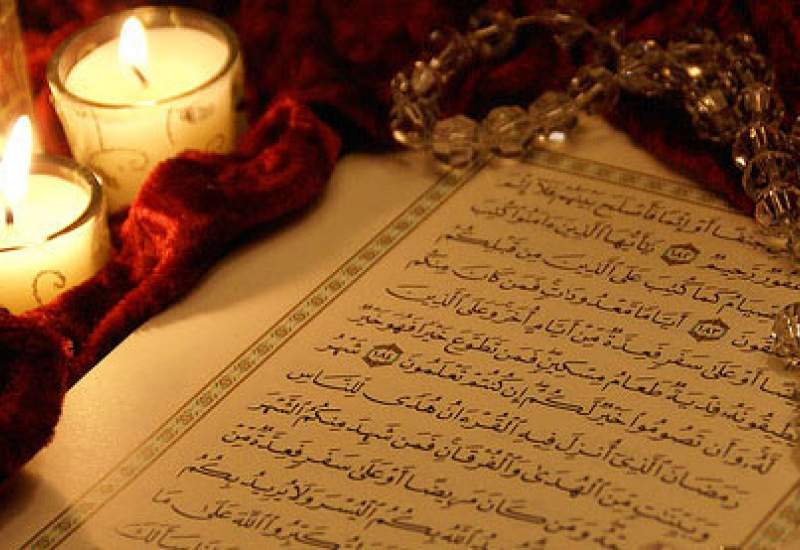 جَنَفًا أَوْ إِثْمًا فَأَصْلَحَ بَيْنَهُمْ فَلَآ إِثْمَ
غَفُورٌ رَّحِيمٌ ١٨٢ يَٰٓأَيُّهَا ٱلَّذِينَ ءَامَنُوا۟ كُتِبَ
ٱلصِّيَامُ كَمَا كُتِبَ عَلَى ٱلَّذِينَ مِن قَبْلِكُمْ
تَتَّقُونَ ١٨٣ أَيَّامًا مَّعْدُودَٰتٍ فَمَن كَانَ مِنكُم
مَّرِيضًا أَوْ عَلَىٰ سَفَرٍ فَعِدَّةٌ مِّنْ أَيَّامٍ أُخَرَ وَعَلَى ٱلَّذِينَ
يُطِيقُونَهُۥ فِدْيَةٌ طَعَامُ مِسْكِينٍ فَمَن تَطَوَّعَ خَيْرًا فَهُوَ خَيْرٌ
لَّهُۥ وَأَن تَصُومُوا۟ خَيْرٌ لَّكُمْ إِن كُنتُمْ تَعْلَمُونَ ١٨٤ شَهْرُ
رَمَضَانَ ٱلَّذِىٓ أُنزِلَ فِيهِ ٱلْقُرْءَانُ هُدًى لِّلنَّاسِ
وَبَيِّنَٰتٍ مِّنَ ٱلْهُدَىٰ وَٱلْفُرْقَانِ فَمَن شَهِدَ مِنكُمُ ٱلشَّهْرَ
وَمَن كَانَ مَرِيضًا أَوْ عَلَىٰ سَفَرٍ فَعِدَّةٌ مِّنْ
ٱللَّهُ بِكُمُ ٱلْيُسْرَ وَلَا يُرِيدُ بِكُمُ
وَلِتُكَبِّرُوا۟ ٱللَّهَ عَلَىٰ مَا
سَأَلَكَ